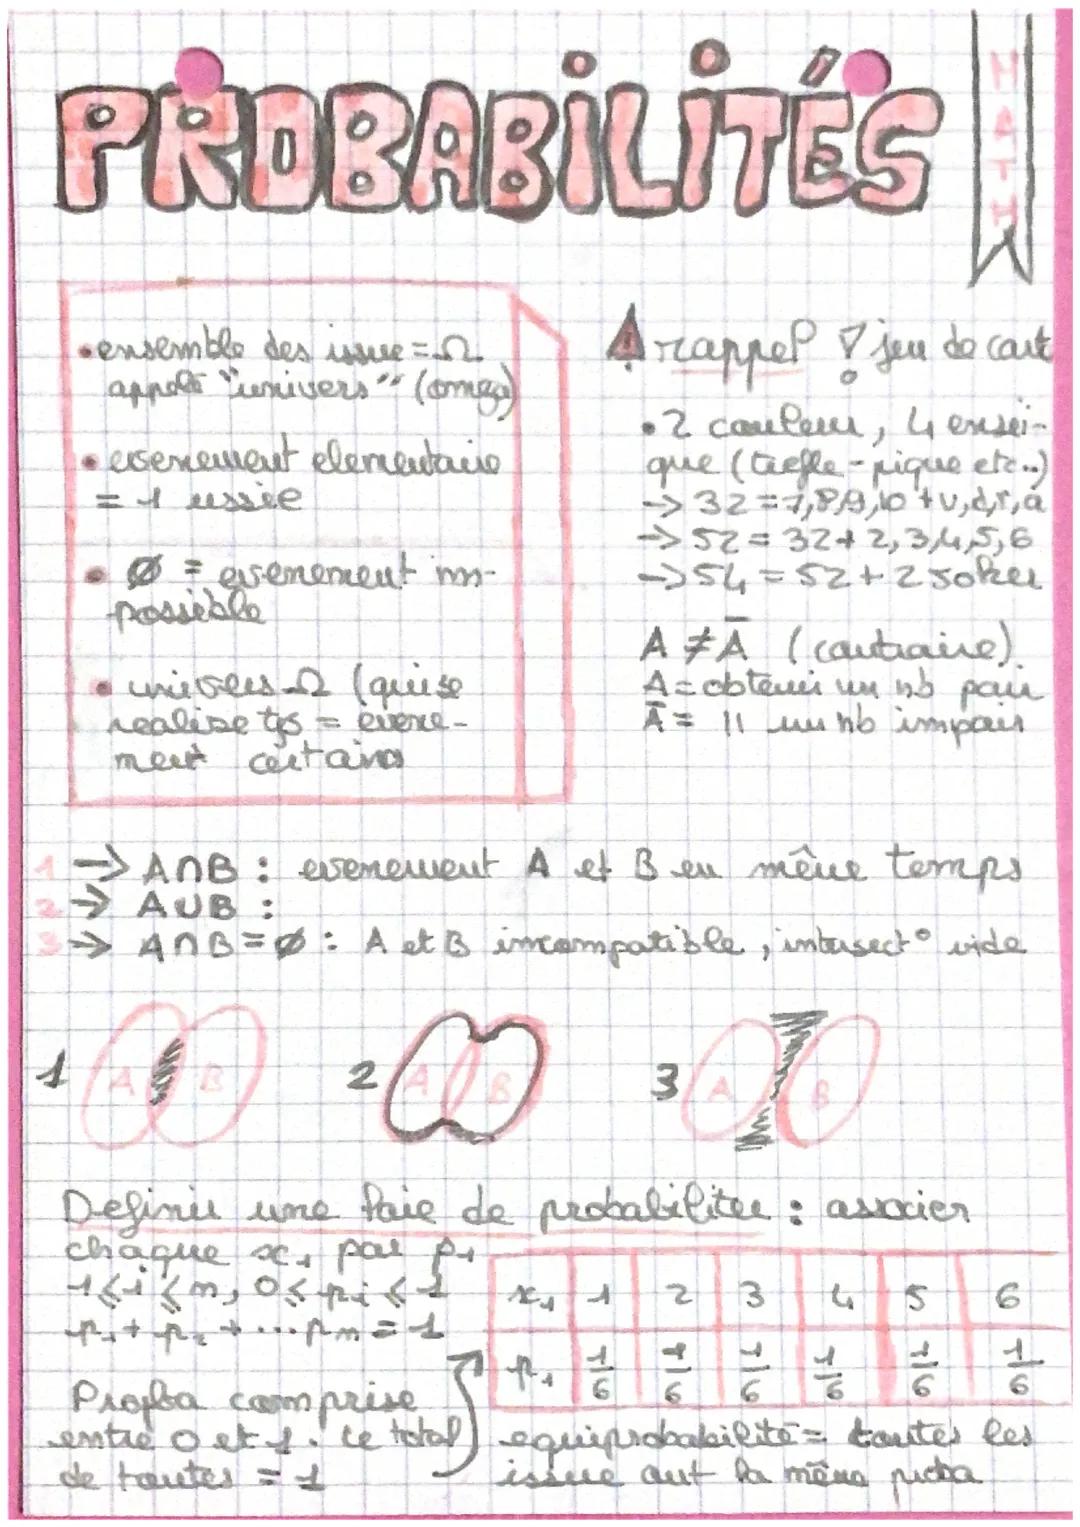 PROBABILITÉS
MATH
•ensemble des issue = Ω
appelé "univers" (omega)
• evenement elementaire
= 1 issue
• Ø = evenement im-
possible
• univers Ω (qui se
realise tjs = evene-
ment certains
rappel ! jeu de cart
• 2 couleur, 4 ensei-
gne (trefle - pique etc..)
→ 32 = 7,8,9,10 + v,d,r,a
→ 52 = 32 + 2,3,4,5,6
→ 54 = 52 + 2 joker
A ≠ Ā (contraire)
A = obtenir un nb pair
Ā = || un nb impair
1 → A∩B : evenement A et B en même temps
2 → A∪B :
3 → A∩B = Ø : A et B incompatible, intersect° vide
1 A B
2 A B
3 A B
Definir une loie de probabiliter : associer
chaque x₁ par p₁
1≤i≤n, 0≤pi≤1
p₁ + p₂ + ... pn = 1
Proba comprise
entre 0 et 1. Le total
de toutes = 1
x₁ 1 2 3 4 5 6
p₁ 1/6 1/6 1/6 1/6 1/6 1/6
equiprobabilité = toutes les
issue ont la même proba